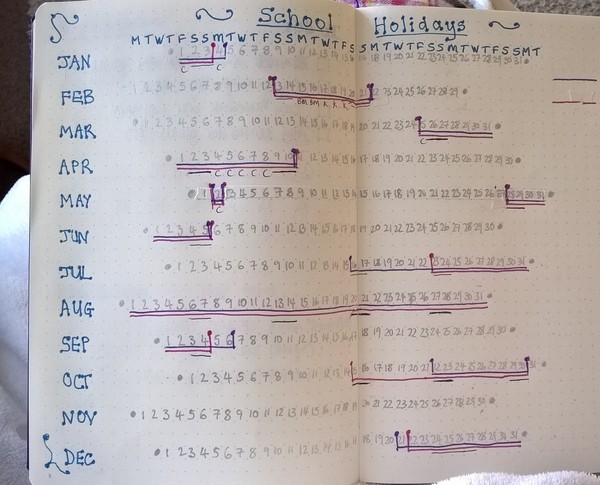 School Holidays
M T W T F S S M T W T F S S M T W T F S S M T W T F S S M T W T F S S M T
JAN 1 2 3 4 5 6 7 8 9 10 11 12 13 14 15 18 19 20 21 22 23 24 25 26 27 28 29 30 31
C C
FEB 1 2 3 4 5 6 7 8 9 10 11 12 13 14 15 16 17 18 19 20 21 22 23 24 25 26 27 28 29
BM BM K K K
MAR 1 2 3 4 5 6 7 8 9 10 11 12 13 14 15 16 17 18 19 20 21 22 23 24 25 26 27 28 29 30 31
C
APR 1 2 3 4 5 6 7 8 9 10 11 12 13 14 15 16 17 18 19 20 21 22 23 24 25 26 27 28 29 30
C C C C C
MAY 1 2 3 4 5 6 7 8 9 10 11 12 13 14 15 16 17 18 19 20 21 22 23 24 25 26 27 28 29 30 31
C
JUN 1 2 3 4 5 6 7 8 9 10 11 12 13 14 15 16 17 18 19 20 21 22 23 24 25 26 27 28 29 30
JUL 1 2 3 4 5 6 7 8 9 10 11 12 13 14 15 16 17 18 19 20 21 22 23 24 25 26 27 28 29 30 31
AUG 1 2 3 4 5 6 7 8 9 10 11 12 13 14 15 16 17 18 19 20 21 22 23 24 25 26 27 28 29 30 31
SEP 1 2 3 4 5 6 7 8 9 10 11 12 13 14 15 16 17 18 19 20 21 22 23 24 25 26 27 28 29 30
OCT 1 2 3 4 5 6 7 8 9 10 11 12 13 14 15 16 17 18 19 20 21 22 23 24 25 26 27 28 29 30 31
NOV 1 2 3 4 5 6 7 8 9 10 11 12 13 14 15 16 17 18 19 20 21 22 23 24 25 26 27 28 29 30
DEC 1 2 3 4 5 6 7 8 9 10 11 12 13 14 15 16 17 18 19 20 21 22 23 24 25 26 27 28 29 30 31